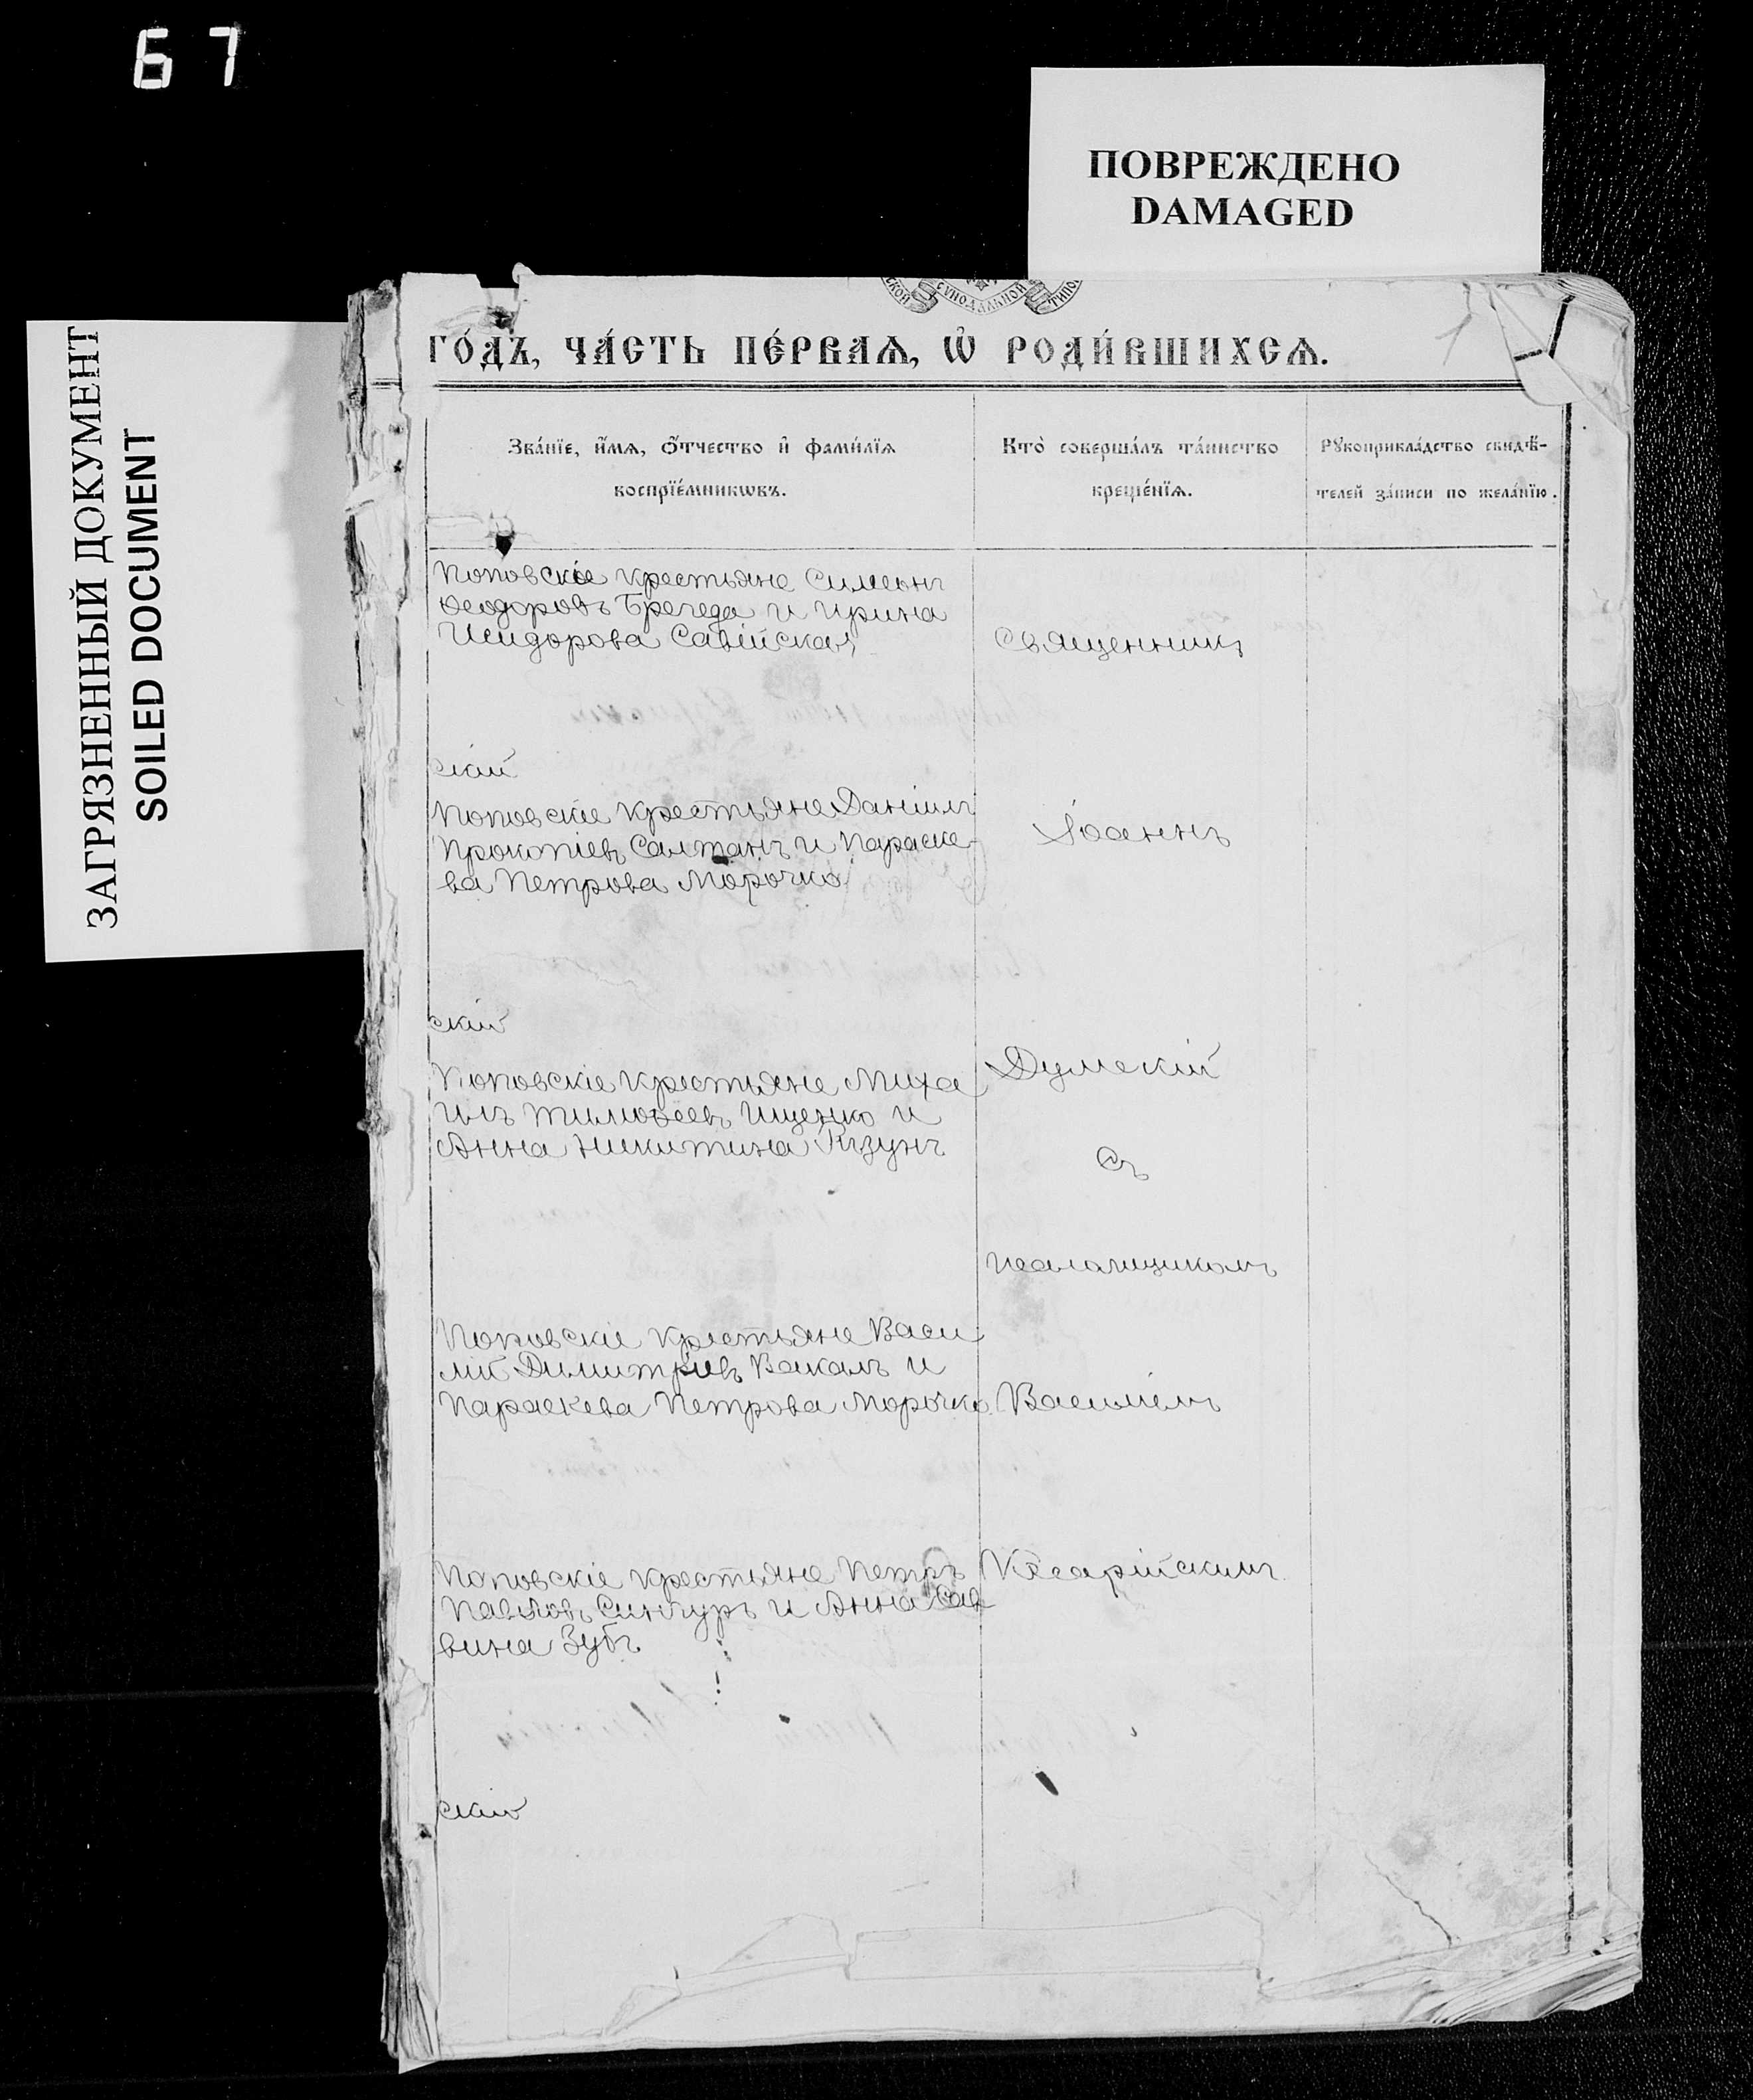 67
ПОВРЕЖДЕНО
DAMAGED
ЗАГРЯЗНЕННЫЙ ДОКУМЕНТ
SOILED DOCUMENT
СКОЙ СѴНОДАЛЬНОЙ ТИПО
ГО́ДЪ, ЧА́СТЬ ПЕ́РВАѦ, Ѽ РОДИ́ВШИХСѦ.
Зва́нїе, и҆́мѧ, ѻ҆́тчество и҆ фами́лїѧ
воспрїе́мникѡвъ.
Кто̀ соверша́лъ та́инство
креще́нїѧ.
Рꙋкоприкла́дство свидѣ́-
телей за́писи по жела́нїю.
Поповскіе крестьяне Симеонъ
Ѳеодоровъ Бречеда и Ирина
Исидорова Савійская
Священникъ
скій
Поповскіе крестьяне Даніилъ
Прокопіевъ Салтанъ и Параске-
ва Петрова Морочко
Іоаннъ
скій
Поповскіе крестьяне Миха
илъ Тимоѳеевъ Ищенко и
Анна Никитина Кизунъ
Думскій
Съ
псаломщикомъ
Поповскіе крестьяне Васи
лій Димитріевъ Вакалъ и
Параскева Петрова Морочко
Василіемъ
Поповскіе крестьяне Петръ
Павловъ Сингуръ и Анна Сав
вина Зубъ
Кесарійскимъ
скій